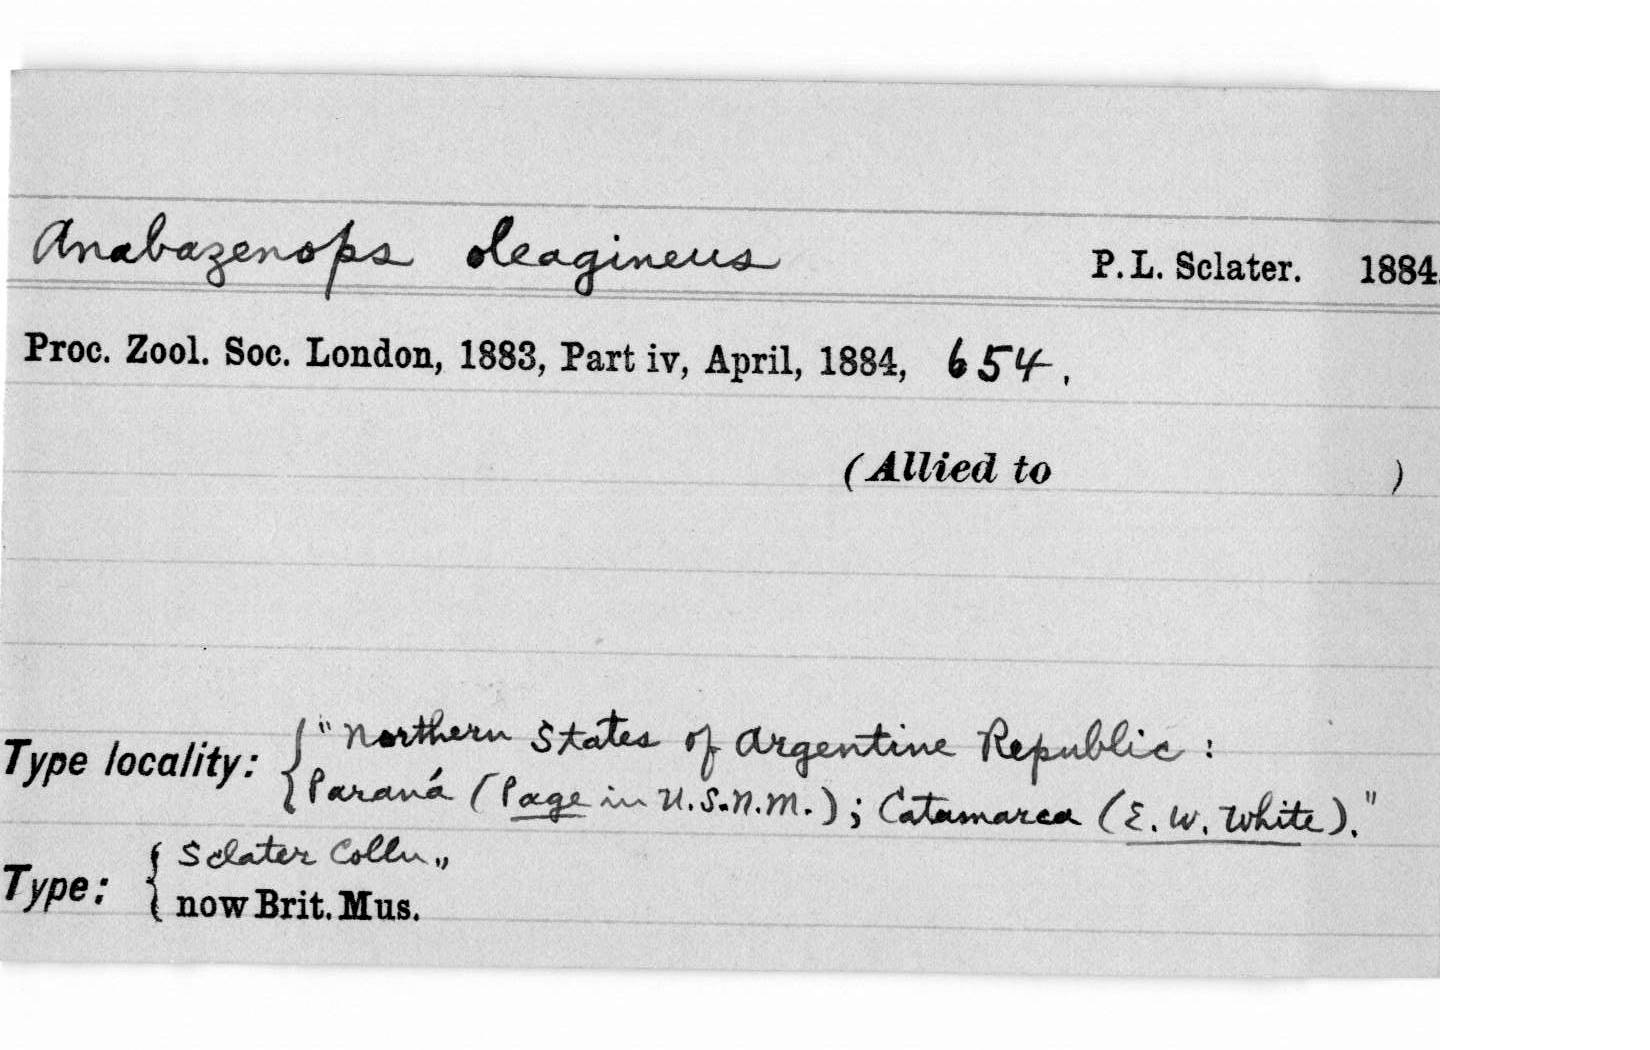 Anabazenops oleagineus P. L. Sclater. 1884.
Proc. Zool. Soc. London, 1883, Part iv, April, 1884, 654.
(Allied to )
Type locality: { "Northern States of Argentine Republic :
Paraná (Page in U.S.N.M.) ; Catamarca (E. W. White)."
Type: { Sclater Colln.,
now Brit. Mus.